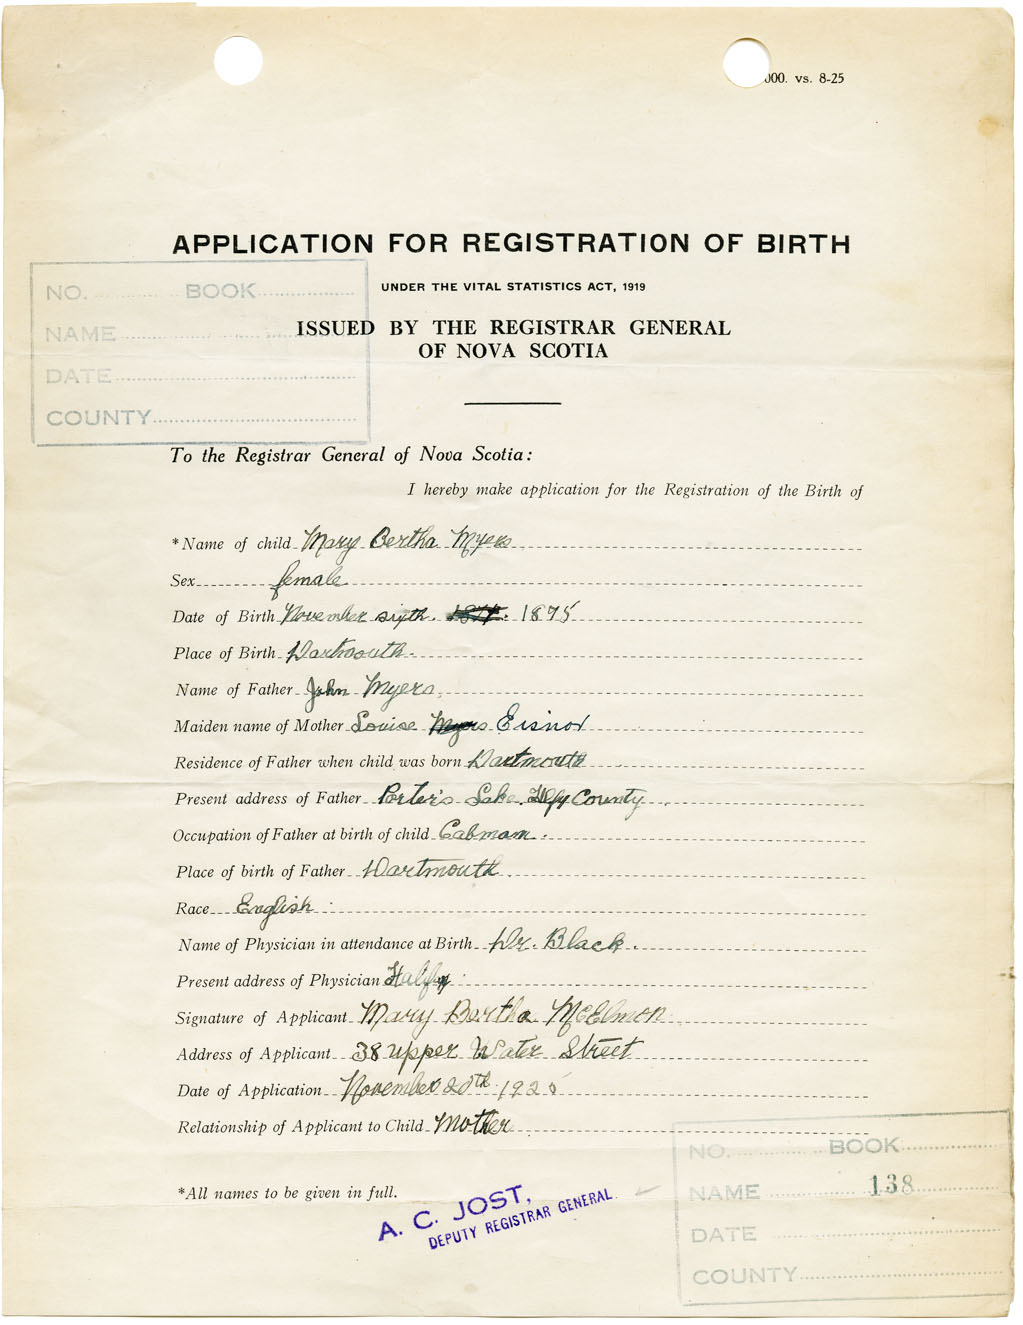 000. vs. 8-25
APPLICATION FOR REGISTRATION OF BIRTH
UNDER THE VITAL STATISTICS ACT, 1919
ISSUED BY THE REGISTRAR GENERAL
OF NOVA SCOTIA
NO. BOOK
NAME
DATE
COUNTY
To the Registrar General of Nova Scotia:
I hereby make application for the Registration of the Birth of
*Name of child Mary Bertha Myers
Sex female
Date of Birth November sixth. 1875
Place of Birth Dartmouth.
Name of Father John Myers
Maiden name of Mother Louise Myers Eisnor
Residence of Father when child was born Dartmouth
Present address of Father Porter's Lake. Hfx County
Occupation of Father at birth of child Cabman.
Place of birth of Father Dartmouth
Race English
Name of Physician in attendance at Birth Dr. Black.
Present address of Physician Halifax
Signature of Applicant Mary Bertha McElmon
Address of Applicant 38 upper Water Street
Date of Application November 20th 1925
Relationship of Applicant to Child Mother
*All names to be given in full.
A. C. JOST,
DEPUTY REGISTRAR GENERAL
NO. BOOK
NAME 138
DATE
COUNTY